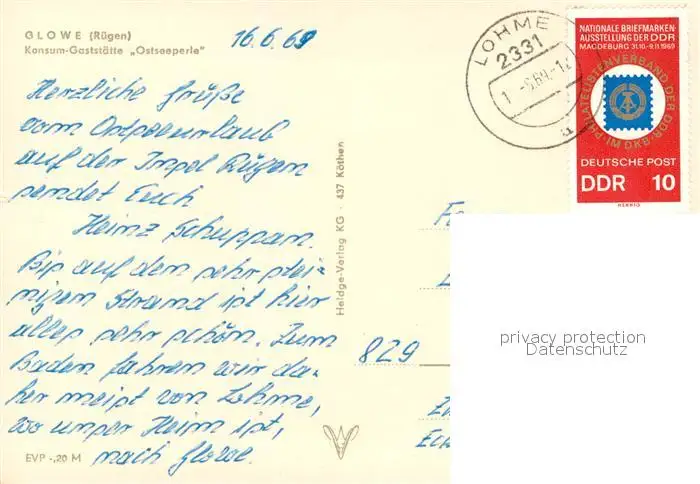 GLOWE (Rügen)
Konsum-Gaststätte „Ostseeperle"
16.6.69
Herzliche Grüße
vom Ostseeurlaub
auf der Insel Rügen
sendet Euch
Heinz Schuppan.
Bis auf den sehr stei-
nigen Strand ist hier
alles sehr schön. Zum
Baden fahren wir da-
her meist von Lohme,
wo unser Heim ist,
nach Glowe.
EVP -,20 M
Heldge-Verlag KG · 437 Köthen
LOHME
2331
NATIONALE BRIEFMARKEN-
AUSSTELLUNG DER DDR
MAGDEBURG 31.10.-9.11.1969
PHILATELISTENVERBAND DER DDR · IM DKB ·
DEUTSCHE POST
DDR 10
829
privacy protection
Datenschutz